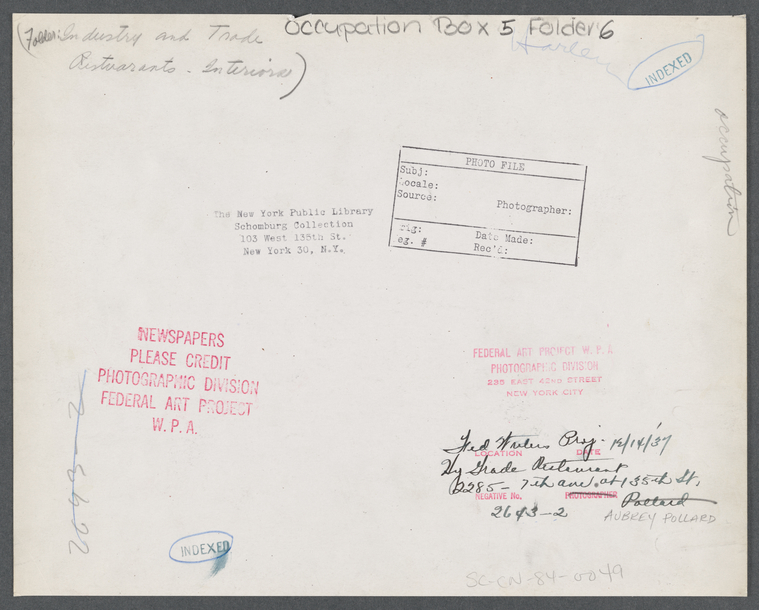 Occupation Box 5 Folder 6
(Folder: Industry and Trade
Restuarants - Interiors)
Harlem
INDEXED
occupation
PHOTO FILE
Subj:
Locale:
Source:
Photographer:
Fig:
Date Made:
eg. #
Rec'd:
The New York Public Library
Schomburg Collection
103 West 135th St.
New York 30, N.Y.
NEWSPAPERS
PLEASE CREDIT
PHOTOGRAPHIC DIVISION
FEDERAL ART PROJECT
W. P. A.
FEDERAL ART PROJECT W. P. A.
PHOTOGRAPHIC DIVISION
235 EAST 42ND STREET
NEW YORK CITY
Fed Writers Proj - 12/14/37
LOCATION
DATE
Hy Grade Restaurant
2285 - 7th ave. at 135th St.
NEGATIVE No.
PHOTOGRAPHER
Pollard
2643-2
AUBREY POLLARD
INDEXED
SC-CN-84-0049